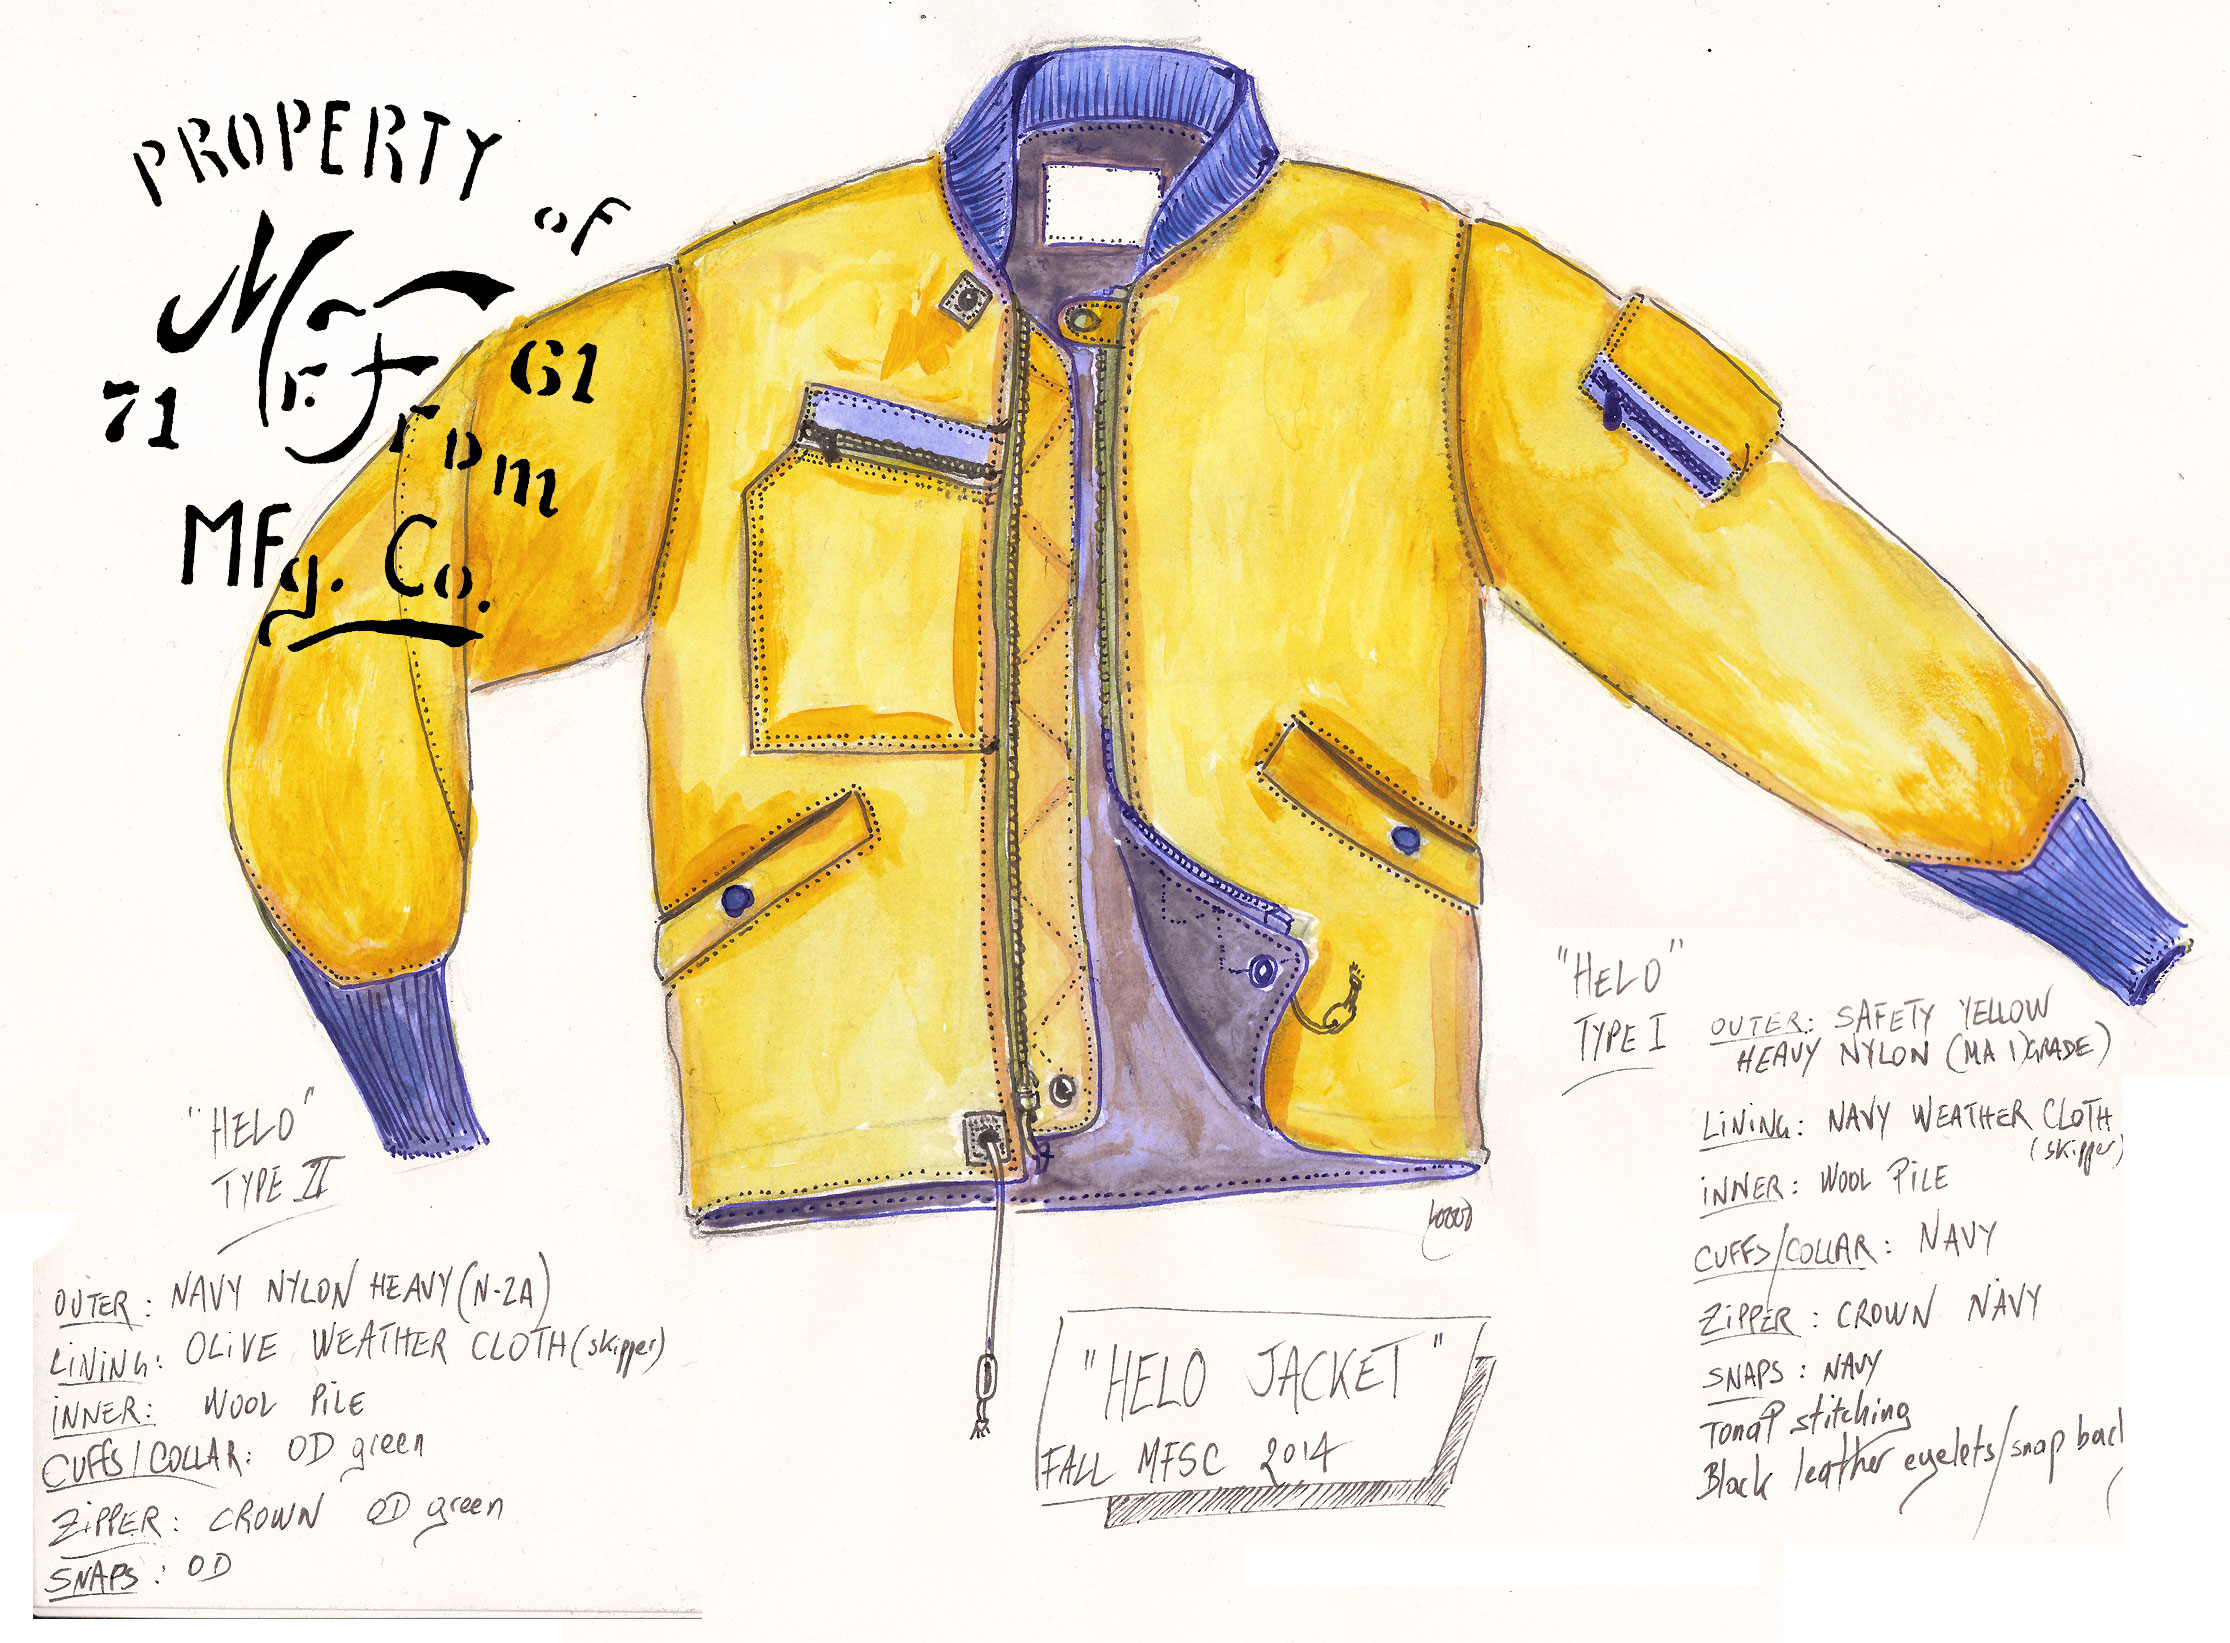 PROPERTY of
Mr. Freedom
71 61
MFg. Co.
"HELO"
TYPE II
OUTER: NAVY NYLON HEAVY (N-2A)
LiNiNG: OLiVE WEATHER CLOTH (skipper)
iNNER: WOOL PiLE
CUFFS/COLLAR: OD green
ZiPPER: CROWN OD green
SNAPS: OD
"HELO JACKET"
FALL MFSC 2014
"HELO"
TYPE I
OUTER: SAFETY YELLOW
HEAVY NYLON (MA1)GRADE)
LiNiNG: NAVY WEATHER CLOTH
(skipper)
iNNER: WOOL PILE
CUFFS/COLLAR: NAVY
ZiPPER: CROWN NAVY
SNAPS: NAVY
Tonal stitching
Black leather eyelets/snap back